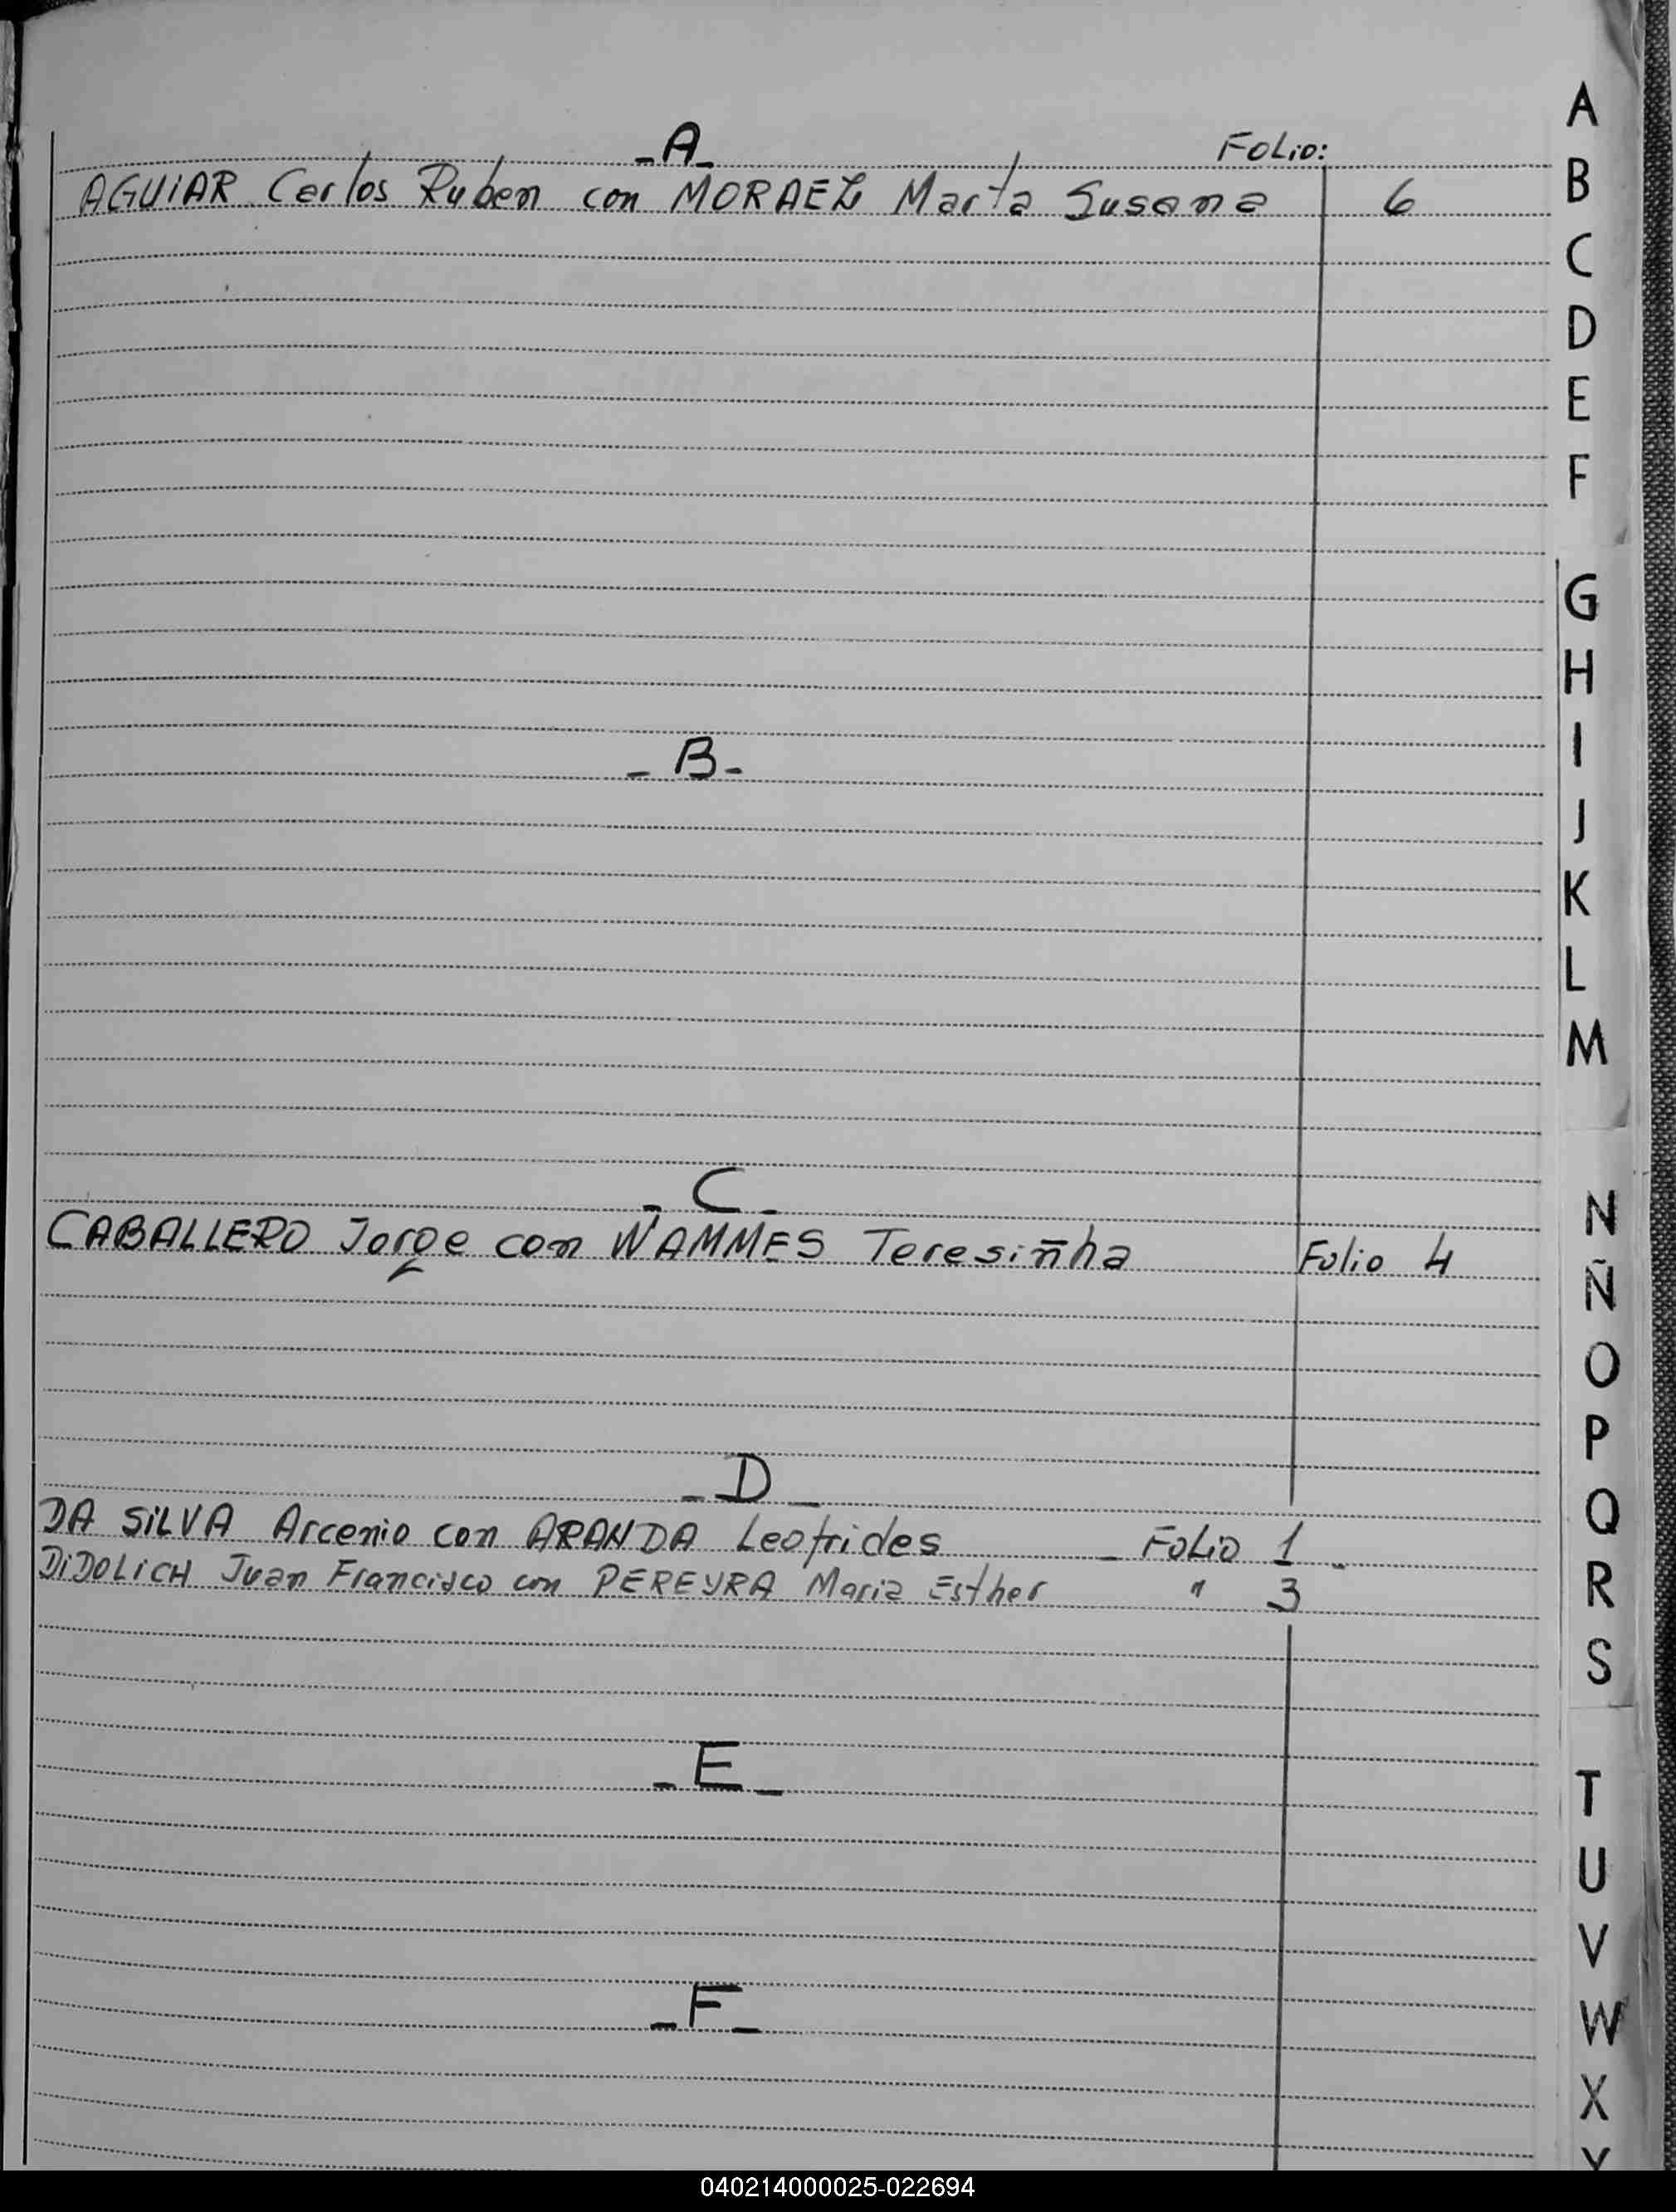 -A- Folio:
AGUIAR Carlos Ruben con MORAEZ Marta Susana 6
-B-
-C-
CABALLERO Jorge con WAMMES Teresiñha Folio 4
-D-
DA SILVA Arcenio con ARANDA Leofrides - Folio 1 -
DIDOLICH Juan Francisco con PEREYRA Maria Esther " 3
-E-
-F-
A
B
C
D
E
F
G
H
I
J
K
L
M
N
Ñ
O
P
Q
R
S
T
U
V
W
X
Y
040214000025-022694